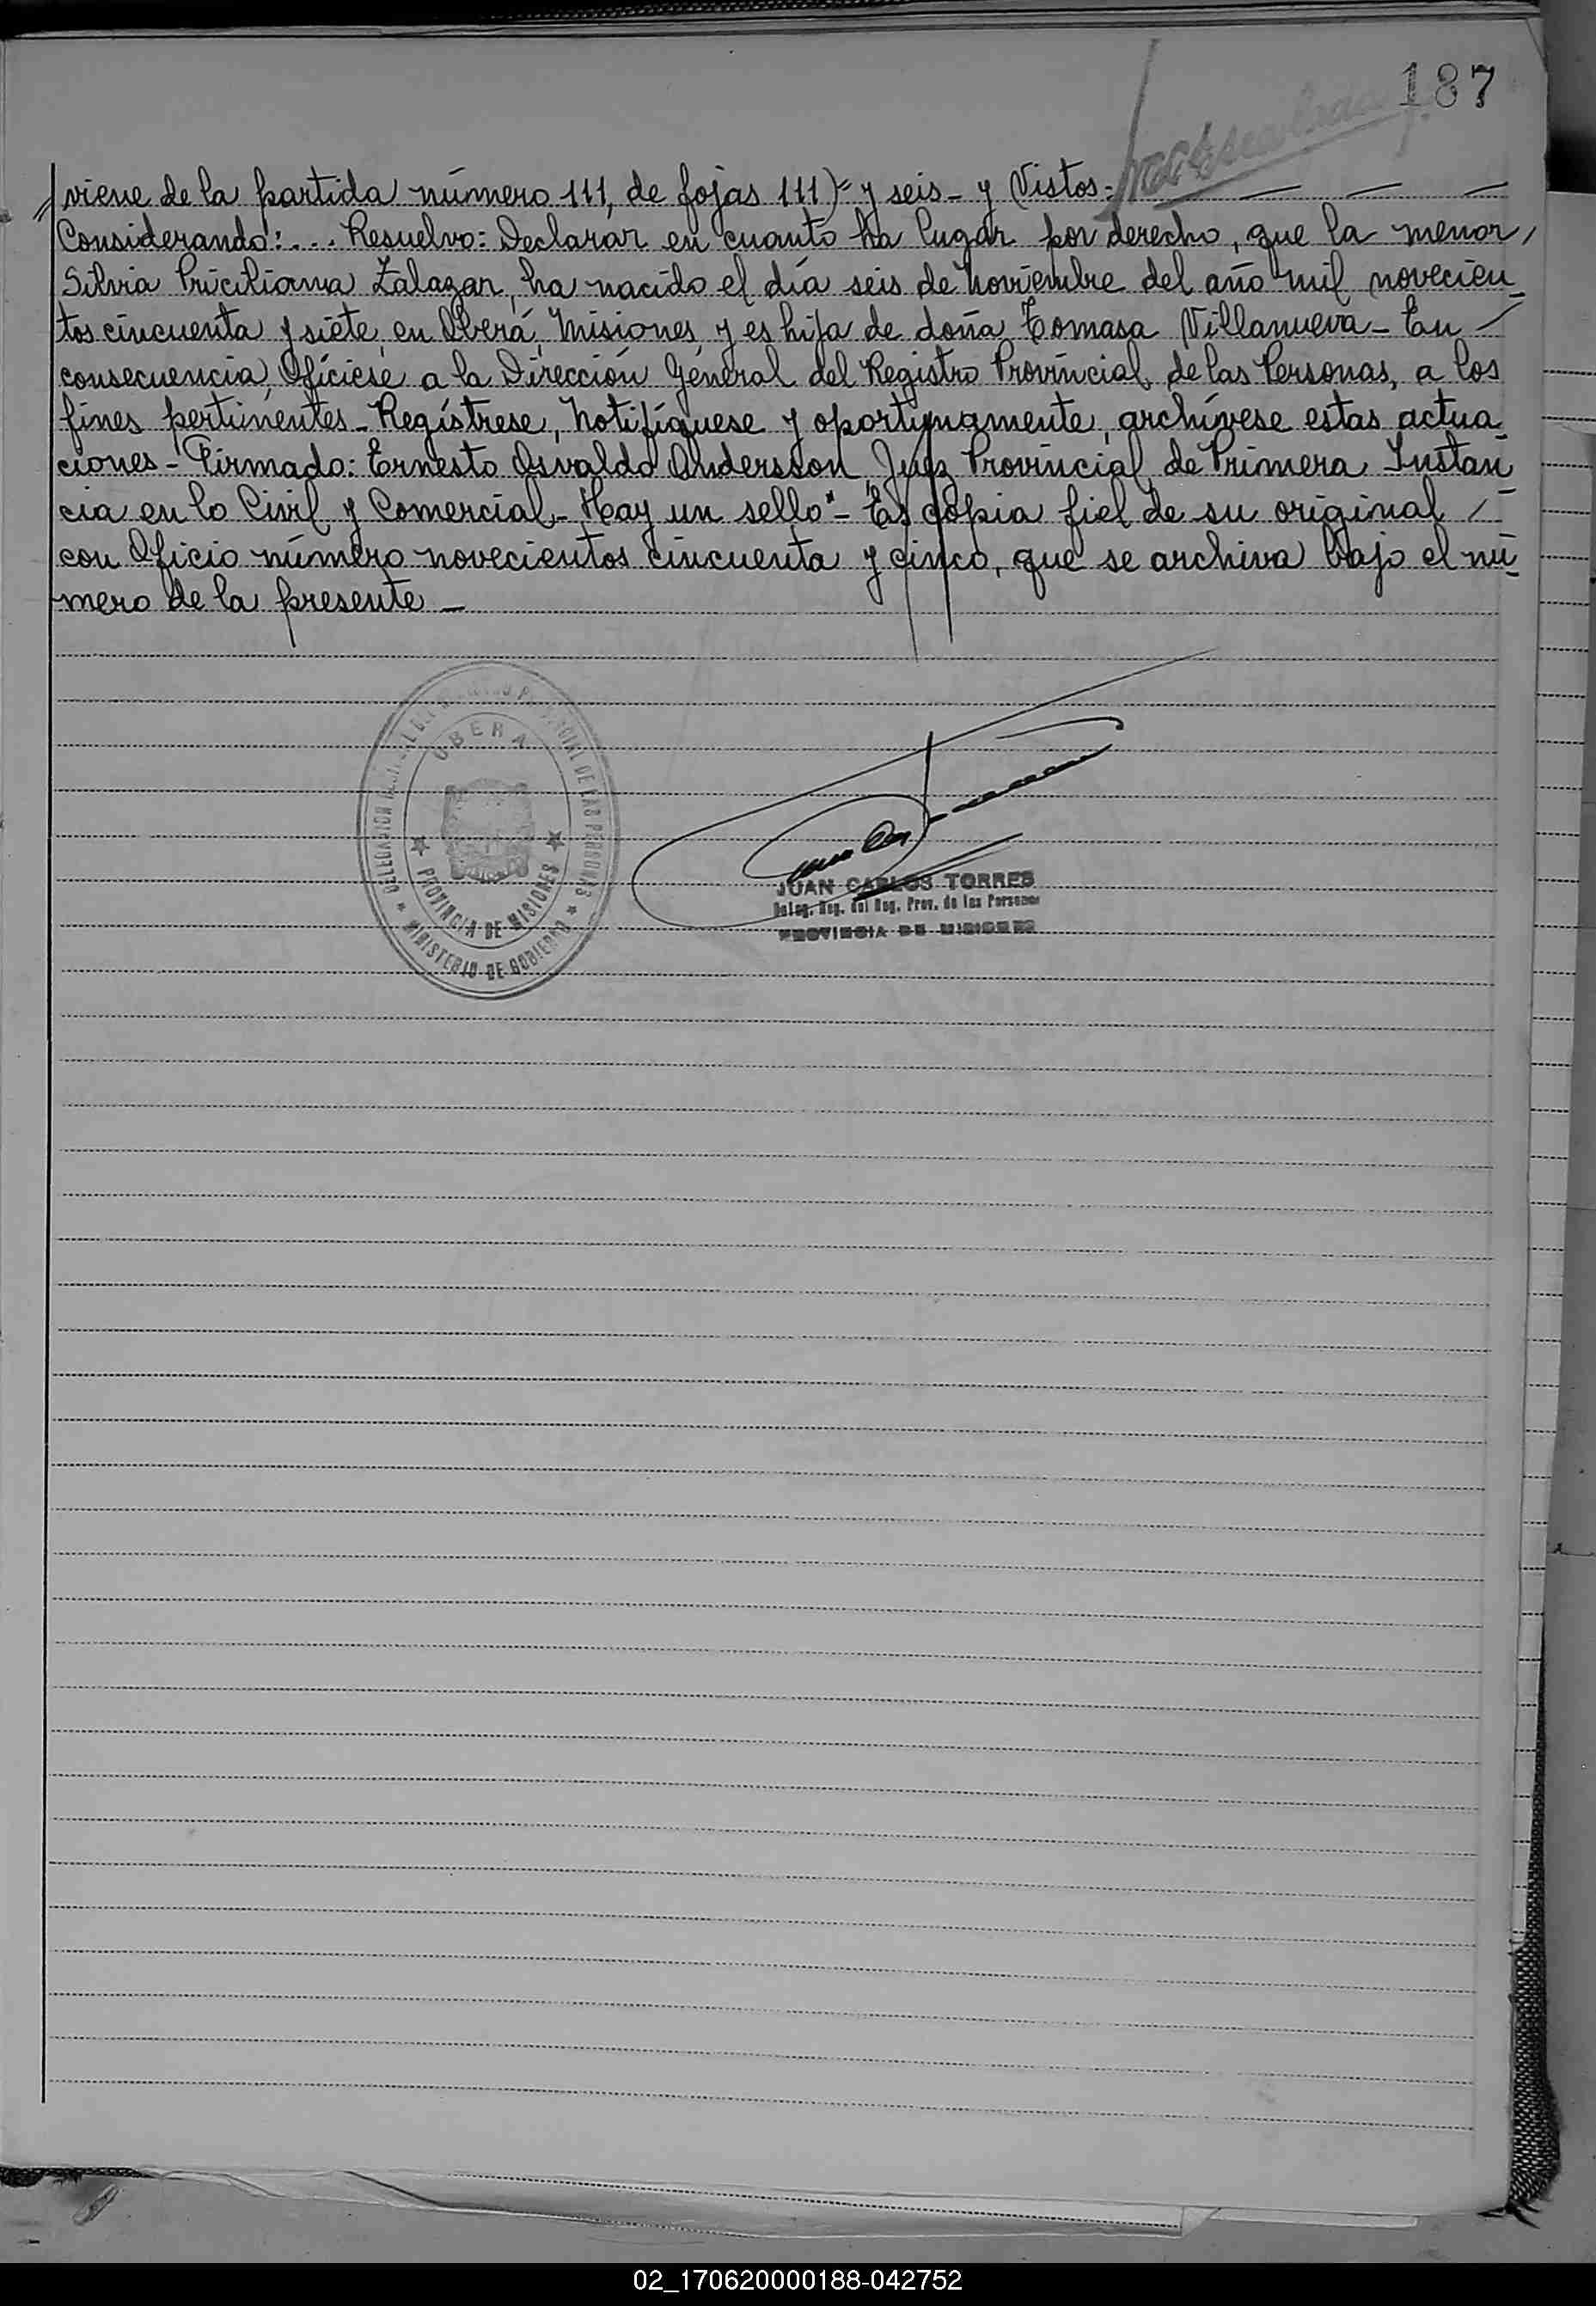 187
viene de la partida número 111, de fojas 111)- y seis - y Vistos. -
Considerando: ... Resuelvo: Declarar en cuanto ha lugar por derecho, que la menor,
Silvia Priciliana Zalazar, ha nacido el día seis de Noviembre del año mil novecien
tos cincuenta y siete, en Oberá, Misiones y es hija de doña Tomasa Villanueva - En
consecuencia, Ofíciese a la Dirección General del Registro Provincial de las Personas, a los
fines pertinentes - Regístrese, Notifíquese y oportunamente, archívese estas actua
ciones - Firmado: Ernesto Osvaldo Andersson, Juez Provincial de Primera Instan
cia en lo Civil y Comercial - Hay un sello" - Es copia fiel de su original
con Oficio número novecientos cincuenta y cinco, que se archiva bajo el nú
mero de la presente -
OBERA
PROVINCIA DE MISIONES
DELEGACION PROVINCIAL DE LAS PERSONAS
MINISTERIO DE GOBIERNO
JUAN CARLOS TORRES
Deleg. Reg. del Reg. Prov. de las Personas
PROVINCIA DE MISIONES
02_170620000188-042752